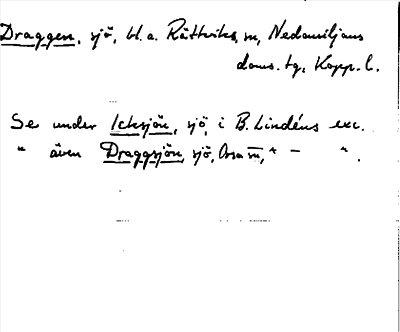 Draggen, sjö, bl.a. Rättviks sn, Nedansiljans
doms. tg, Kopp. l.
Se under Icksjön, sjö, i B. Lindéns exc.
" även Draggsjön, sjö, Orsa sn, " – " .